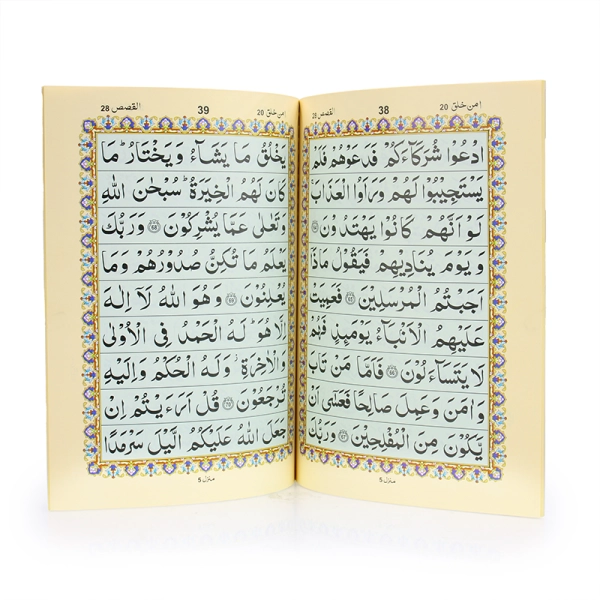 امن خلق 20
38
القصص 28
ادْعُوْا شُرَكَآءَكُمْ فَدَعَوْهُمْ فَلَمْ
يَسْتَجِيْبُوْا لَهُمْ وَرَاَوُا الْعَذَابَ ۚ
لَوْ اَنَّهُمْ كَانُوْا يَهْتَدُوْنَ ۝64
وَ يَوْمَ يُنَادِيْهِمْ فَيَقُوْلُ مَاذَآ
اَجَبْتُمُ الْمُرْسَلِيْنَ ۝65 فَعَمِيَتْ
عَلَيْهِمُ الْاَنْۢبَآءُ يَوْمَىِٕذٍ فَهُمْ
لَا يَتَسَآءَلُوْنَ ۝66 فَاَمَّا مَنْ تَابَ
وَ اٰمَنَ وَ عَمِلَ صَالِحًا فَعَسٰۤى اَنْ
يَّكُوْنَ مِنَ الْمُفْلِحِيْنَ ۝67 وَ رَبُّكَ
منزل 5
امن خلق 20
39
القصص 28
يَخْلُقُ مَا يَشَآءُ وَ يَخْتَارُ ؕ مَا
كَانَ لَهُمُ الْخِيَرَةُ ؕ سُبْحٰنَ اللّٰهِ
وَ تَعٰلٰى عَمَّا يُشْرِكُوْنَ ۝68 وَ رَبُّكَ
يَعْلَمُ مَا تُكِنُّ صُدُوْرُهُمْ وَ مَا
يُعْلِنُوْنَ ۝69 وَ هُوَ اللّٰهُ لَاۤ اِلٰهَ
اِلَّا هُوَ ؕ لَهُ الْحَمْدُ فِى الْاُوْلٰى
وَ الْاٰخِرَةِ ؗ وَ لَهُ الْحُكْمُ وَ اِلَيْهِ
تُرْجَعُوْنَ ۝70 قُلْ اَرَءَيْتُمْ اِنْ
جَعَلَ اللّٰهُ عَلَيْكُمُ الَّيْلَ سَرْمَدًا
منزل 5